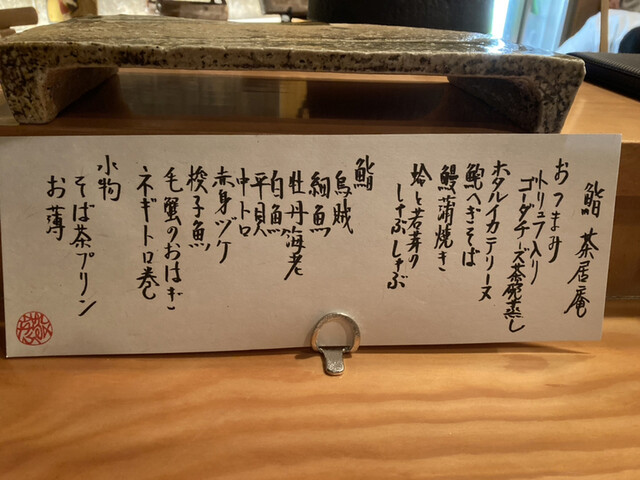 鮨 茶居庵
おつまみ
トリュフ入り
ゴーダチーズ茶碗蒸し
ホタルイカテリーヌ
鮑へぎそば
鰻蒲焼き
蛤と若芽の
しゃぶしゃぶ
鮨
烏賊
細魚
牡丹海老
白魚
平貝
中トロ
赤身ヅケ
梭子魚
毛蟹のおはぎ
ネギトロ巻
水物
そば茶プリン
お薄